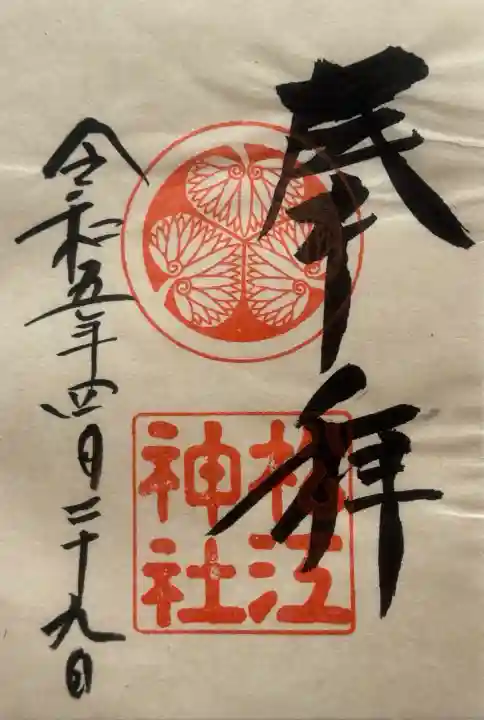 奉拝
松江
神社
令和五年四月二十九日